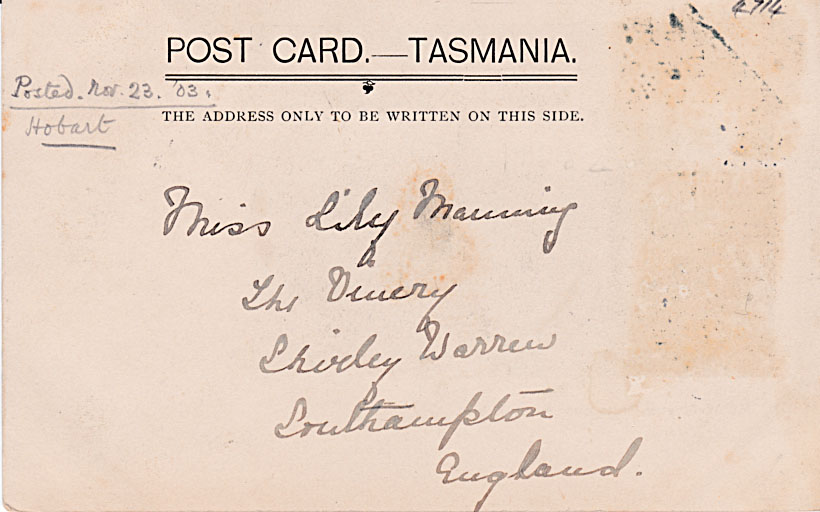 4714
POST CARD.—TASMANIA.
Posted. Nov. 23. '03.
Hobart
THE ADDRESS ONLY TO BE WRITTEN ON THIS SIDE.
Miss Lily Manning
The Vinery
Shirley Warren
Southampton
England.